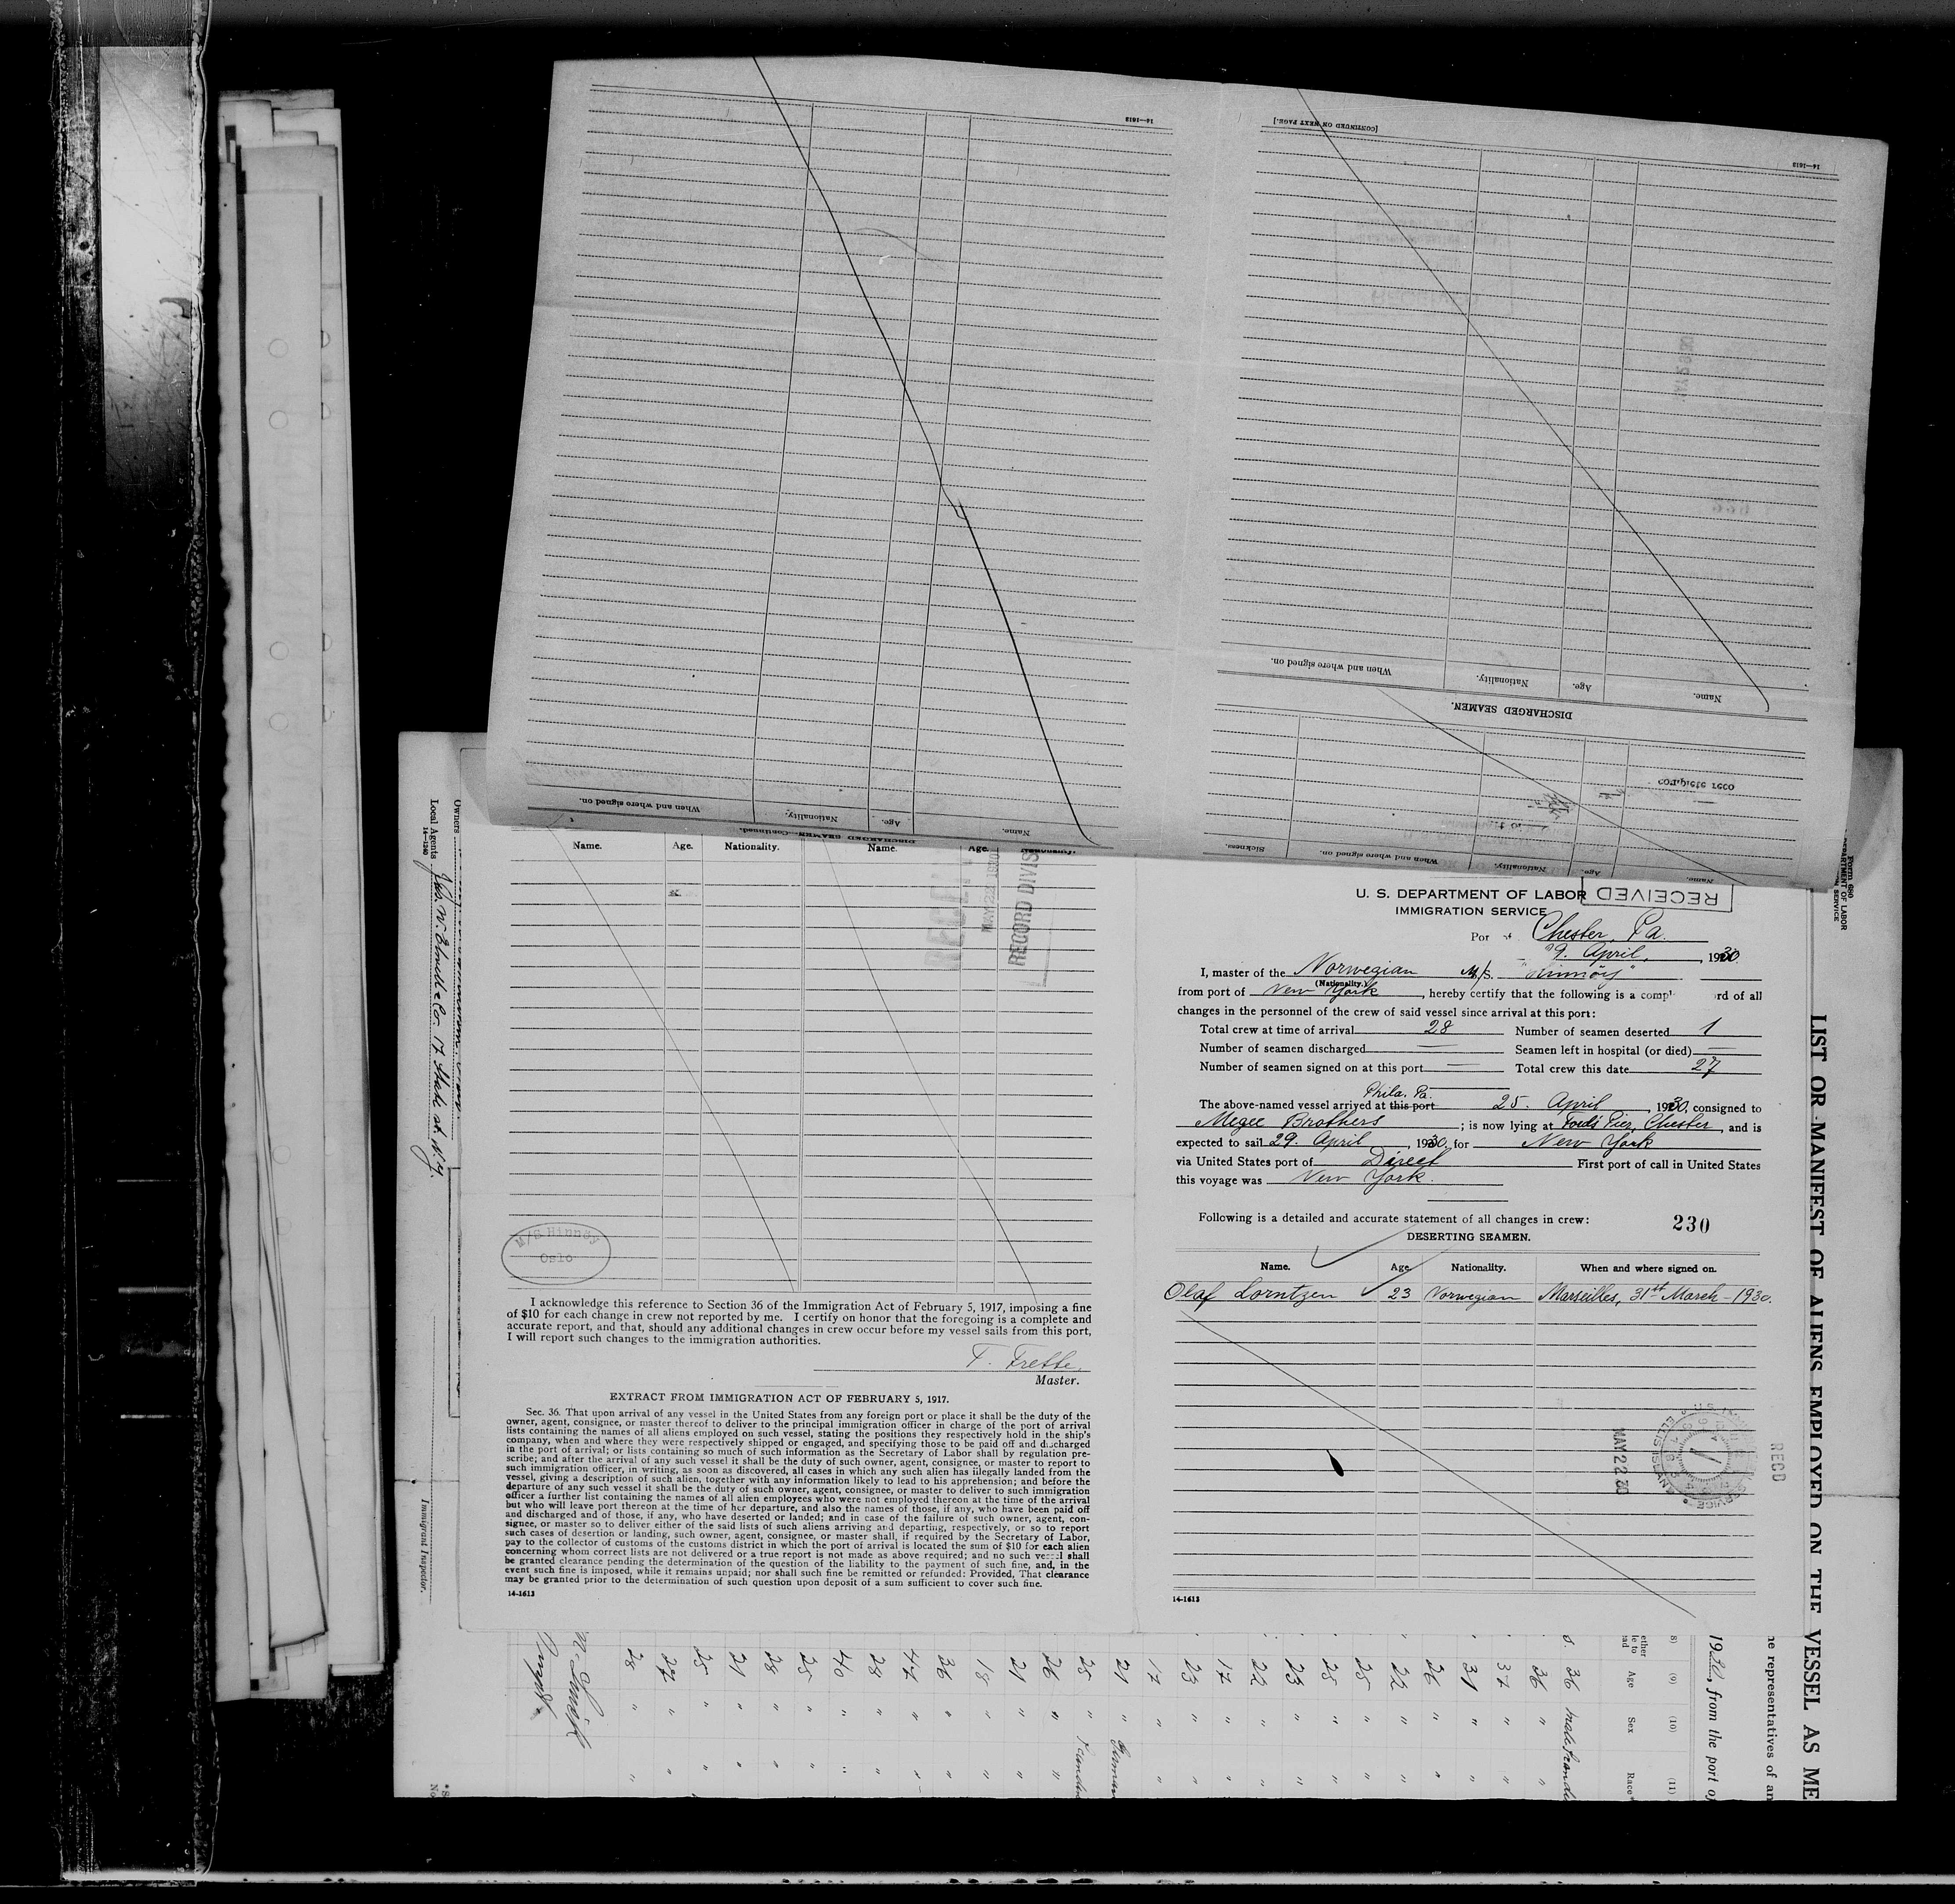 14—1613
[CONTINUED ON NEXT PAGE.]
14—1613
When and where signed on.
Nationality.
Age.
Name.
DISCHARGED SEAMEN.
complete reco
When and where signed on.
Nationality.
Age.
Name.
DISCHARGED SEAMEN—Continued.
Sickness.
When and where signed on.
Nationality.
Age.
Name.
Owners
Local Agents Jas. W. Elwell & Co. 17 State st. N.Y.
14—1240
Immigrant Inspector.
Name. Age. Nationality. Name. Age.
MAY 22 1930
RECORD DIVIS
M/S Hinnoy
Oslo
I acknowledge this reference to Section 36 of the Immigration Act of February 5, 1917, imposing a fine
of $10 for each change in crew not reported by me. I certify on honor that the foregoing is a complete and
accurate report, and that, should any additional changes in crew occur before my vessel sails from this port,
I will report such changes to the immigration authorities.
T. Frette.
Master.
EXTRACT FROM IMMIGRATION ACT OF FEBRUARY 5, 1917.
Sec. 36. That upon arrival of any vessel in the United States from any foreign port or place it shall be the duty of the
owner, agent, consignee, or master thereof to deliver to the principal immigration officer in charge of the port of arrival
lists containing the names of all aliens employed on such vessel, stating the positions they respectively hold in the ship's
company, when and where they were respectively shipped or engaged, and specifying those to be paid off and discharged
in the port of arrival; or lists containing so much of such information as the Secretary of Labor shall by regulation pre-
scribe; and after the arrival of any such vessel it shall be the duty of such owner, agent, consignee, or master to report to
such immigration officer, in writing, as soon as discovered, all cases in which any such alien has illegally landed from the
vessel, giving a description of such alien, together with any information likely to lead to his apprehension; and before the
departure of any such vessel it shall be the duty of such owner, agent, consignee, or master to deliver to such immigration
officer a further list containing the names of all alien employees who were not employed thereon at the time of the arrival
but who will leave port thereon at the time of her departure, and also the names of those, if any, who have been paid off
and discharged and of those, if any, who have deserted or landed; and in case of the failure of such owner, agent, con-
signee, or master so to deliver either of the said lists of such aliens arriving and departing, respectively, or so to report
such cases of desertion or landing, such owner, agent, consignee, or master shall, if required by the Secretary of Labor,
pay to the collector of customs of the customs district in which the port of arrival is located the sum of $10 for each alien
concerning whom correct lists are not delivered or a true report is not made as above required; and no such vessel shall
be granted clearance pending the determination of the question of the liability to the payment of such fine, and, in the
event such fine is imposed, while it remains unpaid; nor shall such fine be remitted or refunded: Provided, That clearance
may be granted prior to the determination of such question upon deposit of a sum sufficient to cover such fine.
14-1613
U. S. DEPARTMENT OF LABOR
RECEIVED
IMMIGRATION SERVICE
Por Chester, Pa.
29. April, 1930
I, master of the Norwegian M/S. "Hinnöy"
(Nationality.)
from port of New York, hereby certify that the following is a compl rd of all
changes in the personnel of the crew of said vessel since arrival at this port:
Total crew at time of arrival 28 Number of seamen deserted 1
Number of seamen discharged — Seamen left in hospital (or died) —
Number of seamen signed on at this port — Total crew this date 27
Phila. Pa.
The above-named vessel arrived at this port 25. April, 1930, consigned to
Megee Brothers; is now lying at Fords Pier, Chester, and is
expected to sail 29. April, 1930, for New York
via United States port of Direct First port of call in United States
this voyage was New York.
Following is a detailed and accurate statement of all changes in crew: 230
DESERTING SEAMEN.
Name. Age. Nationality. When and where signed on.
Olaf Lorntzen 23 Norwegian Marseilles, 31st March - 1930.
MAY 22 30
RECD
14-1613
Form 680
LIST OR MANIFEST OF ALIENS EMPLOYED ON THE VESSEL AS ME
he representatives of an
1930, from the port of
(8) (9) (10) (11)
Age Sex Race
36 male
36 "
37 "
31 "
26 "
22 "
25 "
25 "
23 "
22 "
17 "
23 "
17 "
21 " German
25 "
26 " "
21 " "
18 " "
36 " "
44 "
28 " "
40 " "
25 " "
28 " "
21 " "
25 " "
27 " "
28 " "